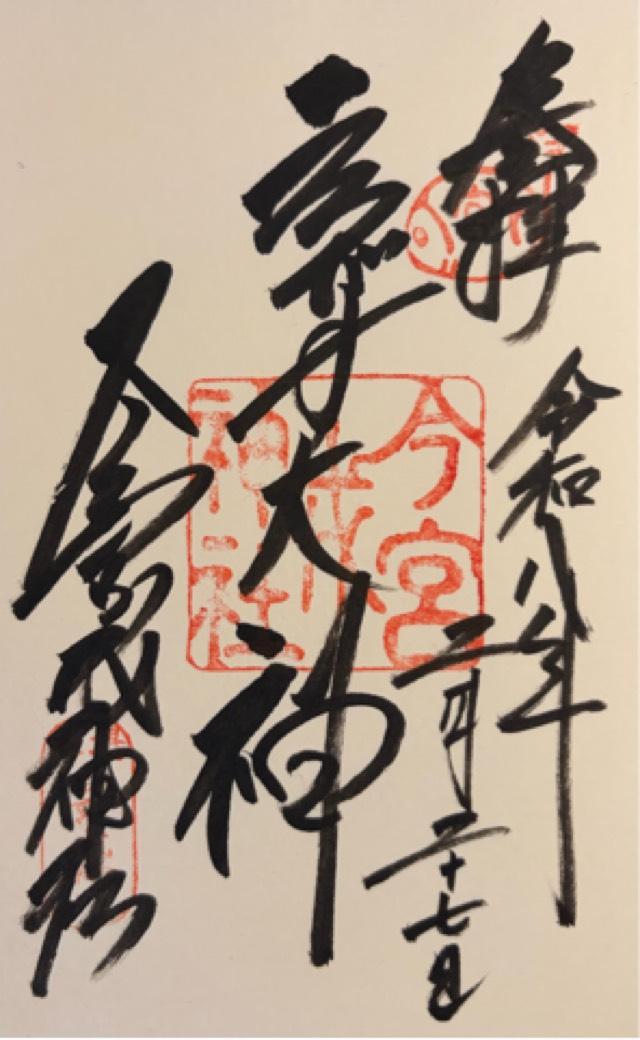 奉拝
令和八年
二月二十七日
大神
今宮戎神社
今宮
戎
神社